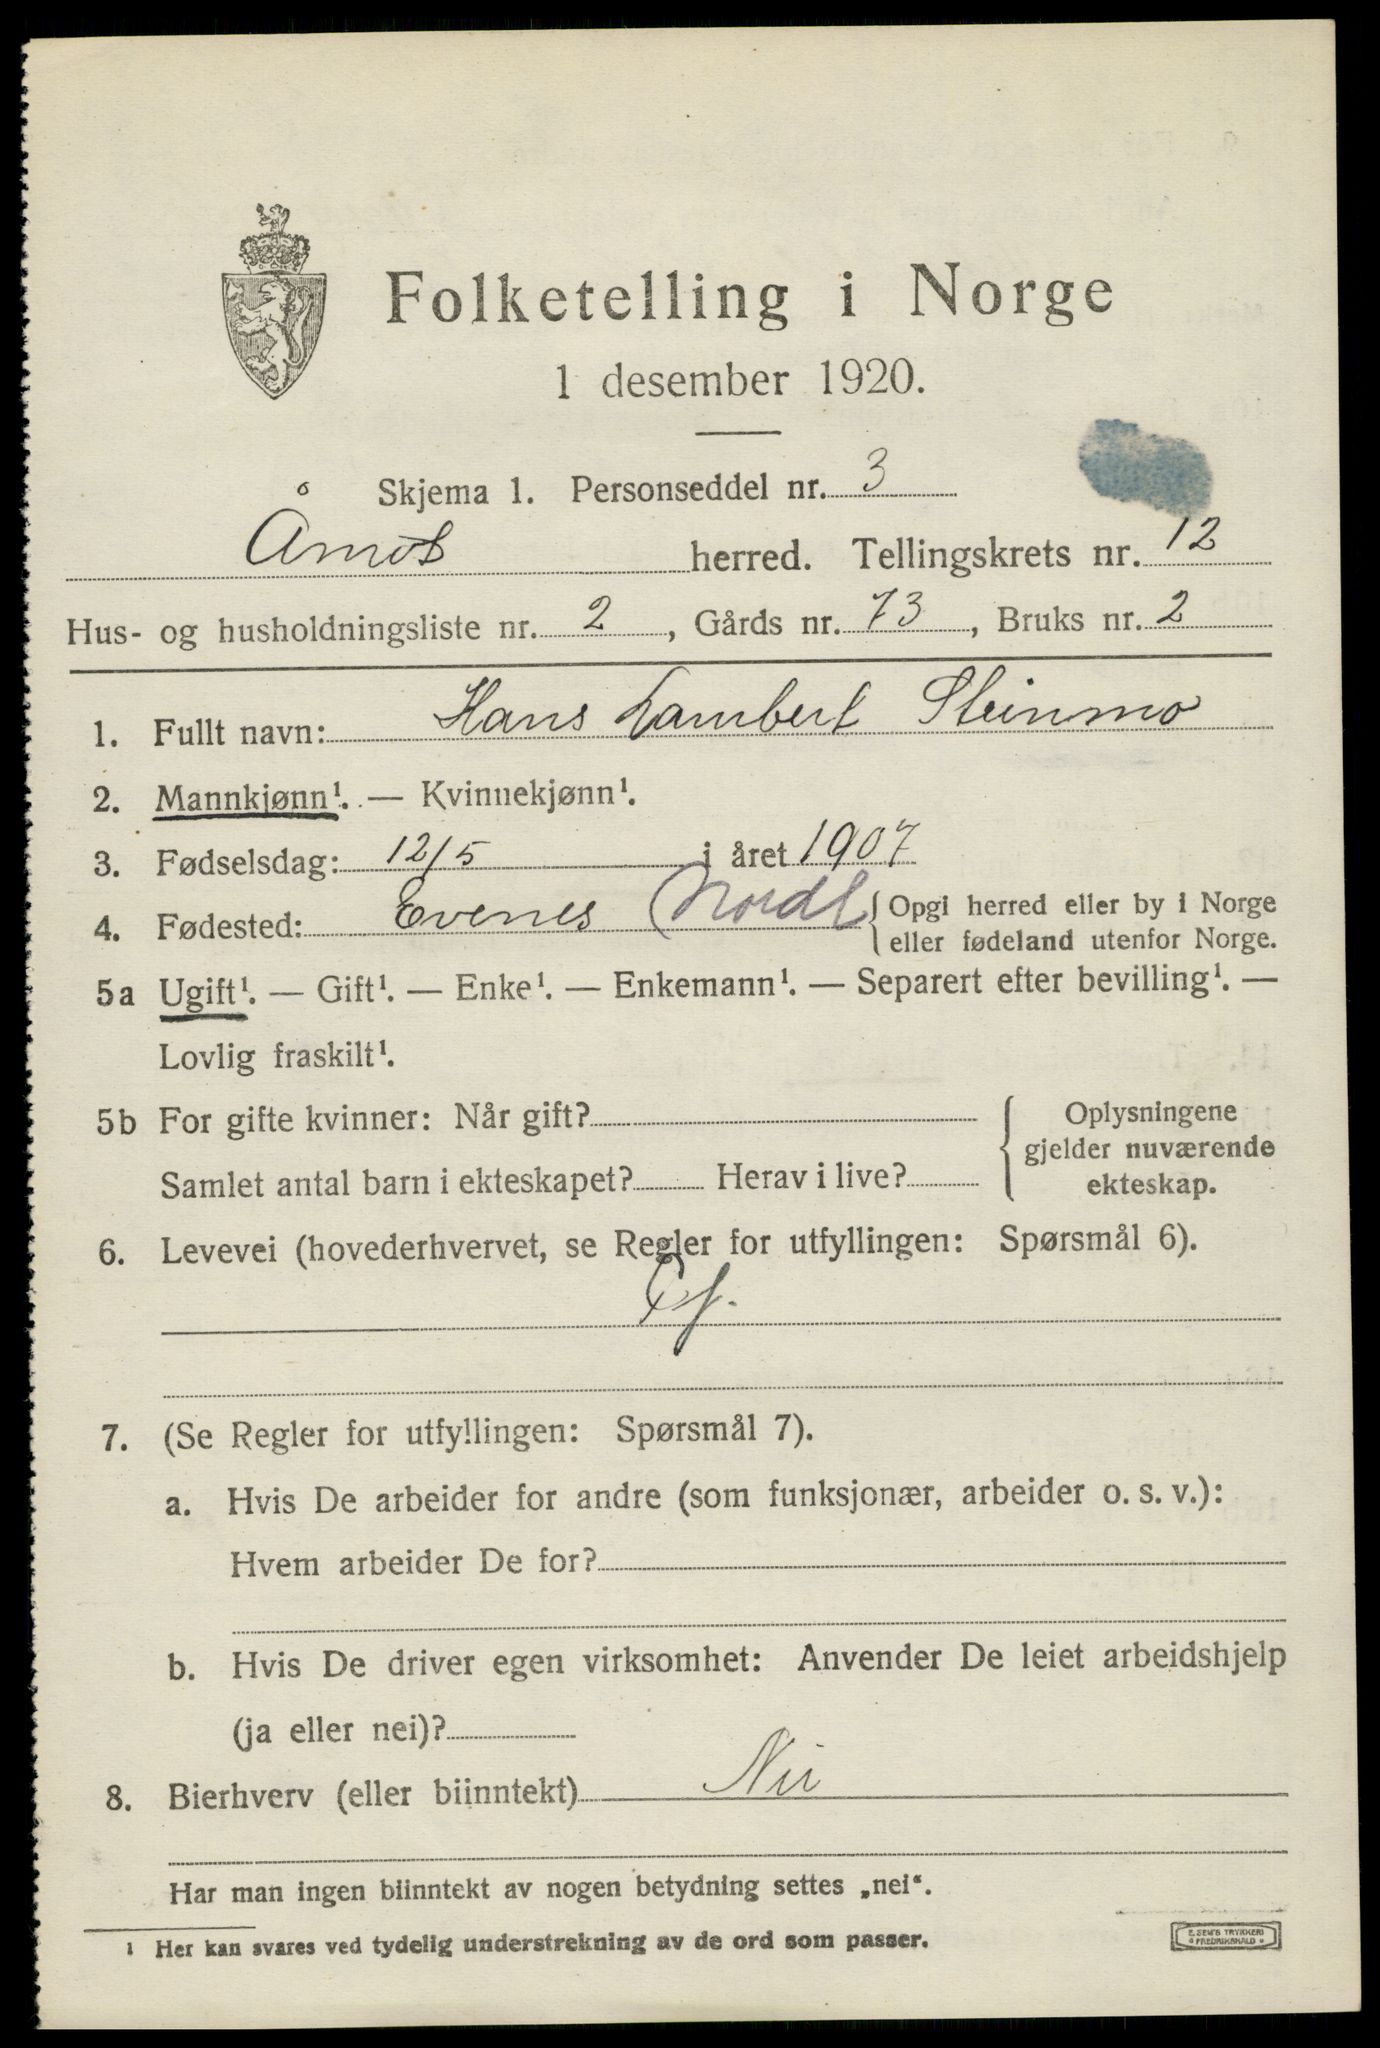 Folketelling i Norge
1 desember 1920.
Skjema 1. Personseddel nr. 3
Åmot herred. Tellingskrets nr. 12
Hus- og husholdningsliste nr. 2, Gårds nr. 73, Bruks nr. 2
1. Fullt navn: Hans Lambert Steinmo
2. Mannkjønn¹. — Kvinnekjønn¹.
3. Fødselsdag: 12/5 i året 1907
4. Fødested: Evenes (Nordl { Opgi herred eller by i Norge
eller fødeland utenfor Norge.
5a Ugift¹. — Gift¹. — Enke¹. — Enkemann¹. — Separert efter bevilling¹. —
Lovlig fraskilt¹.
5b For gifte kvinner: Når gift? { Oplysningene
gjelder nuværende
Samlet antal barn i ekteskapet? Herav i live? ekteskap.
6. Levevei (hovederhvervet, se Regler for utfyllingen: Spørsmål 6).
7. (Se Regler for utfyllingen: Spørsmål 7).
a. Hvis De arbeider for andre (som funksjonær, arbeider o. s. v.):
Hvem arbeider De for?
b. Hvis De driver egen virksomhet: Anvender De leiet arbeidshjelp
(ja eller nei)?
8. Bierhverv (eller biinntekt) Nei
Har man ingen biinntekt av nogen betydning settes „nei“.
¹ Her kan svares ved tydelig understrekning av de ord som passer.
E. SEM'S TRYKKERI
FREDRIKSHALD